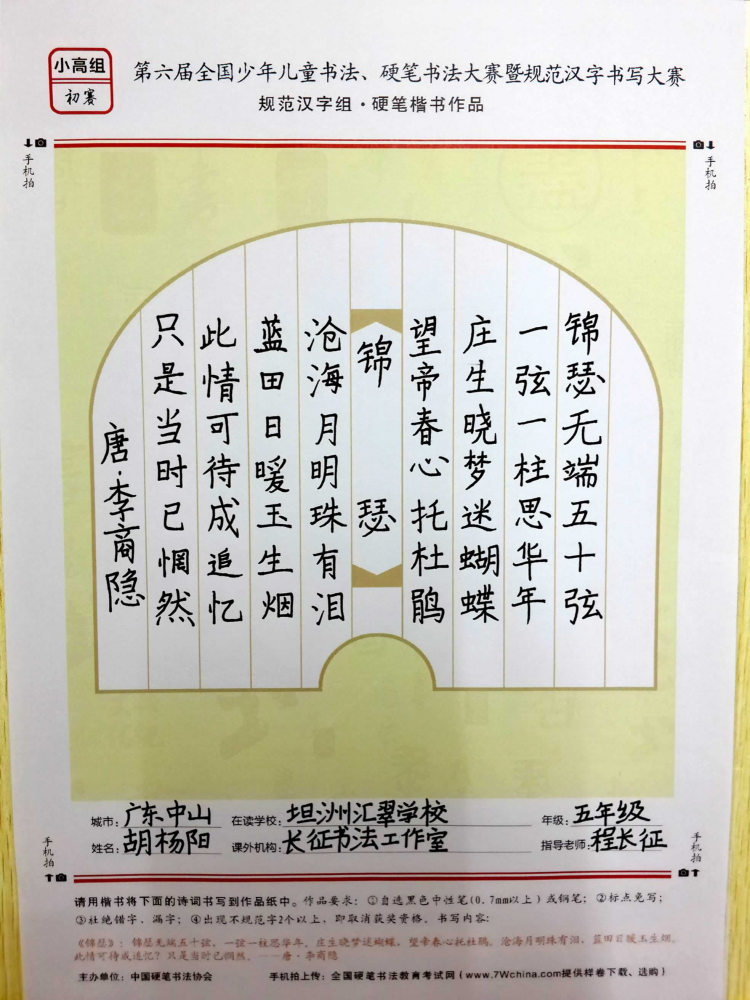 小高组
初赛
第六届全国少年儿童书法、硬笔书法大赛暨规范汉字书写大赛
规范汉字组·硬笔楷书作品
手机拍
手机拍
锦瑟无端五十弦
一弦一柱思华年
庄生晓梦迷蝴蝶
望帝春心托杜鹃
锦瑟
沧海月明珠有泪
蓝田日暖玉生烟
此情可待成追忆
只是当时已惘然
唐·李商隐
城市：广东中山 在读学校：坦洲汇翠学校 年级：五年级
姓名：胡杨阳 课外机构：长征书法工作室 指导老师：程长征
手机拍
手机拍
请用楷书将下面的诗词书写到作品纸中。作品要求：①自选黑色中性笔(0.7mm以上)或钢笔；②标点免写；
③杜绝错字、漏字；④出现不规范字2个以上，即取消获奖资格。书写内容：
《锦瑟》：锦瑟无端五十弦，一弦一柱思华年。庄生晓梦迷蝴蝶，望帝春心托杜鹃。沧海月明珠有泪，蓝田日暖玉生烟。
此情可待成追忆？只是当时已惘然。——唐·李商隐
主办单位：中国硬笔书法协会 手机拍上传：全国硬笔书法教育考试网(www.7Wchina.com提供样卷下载、选购)